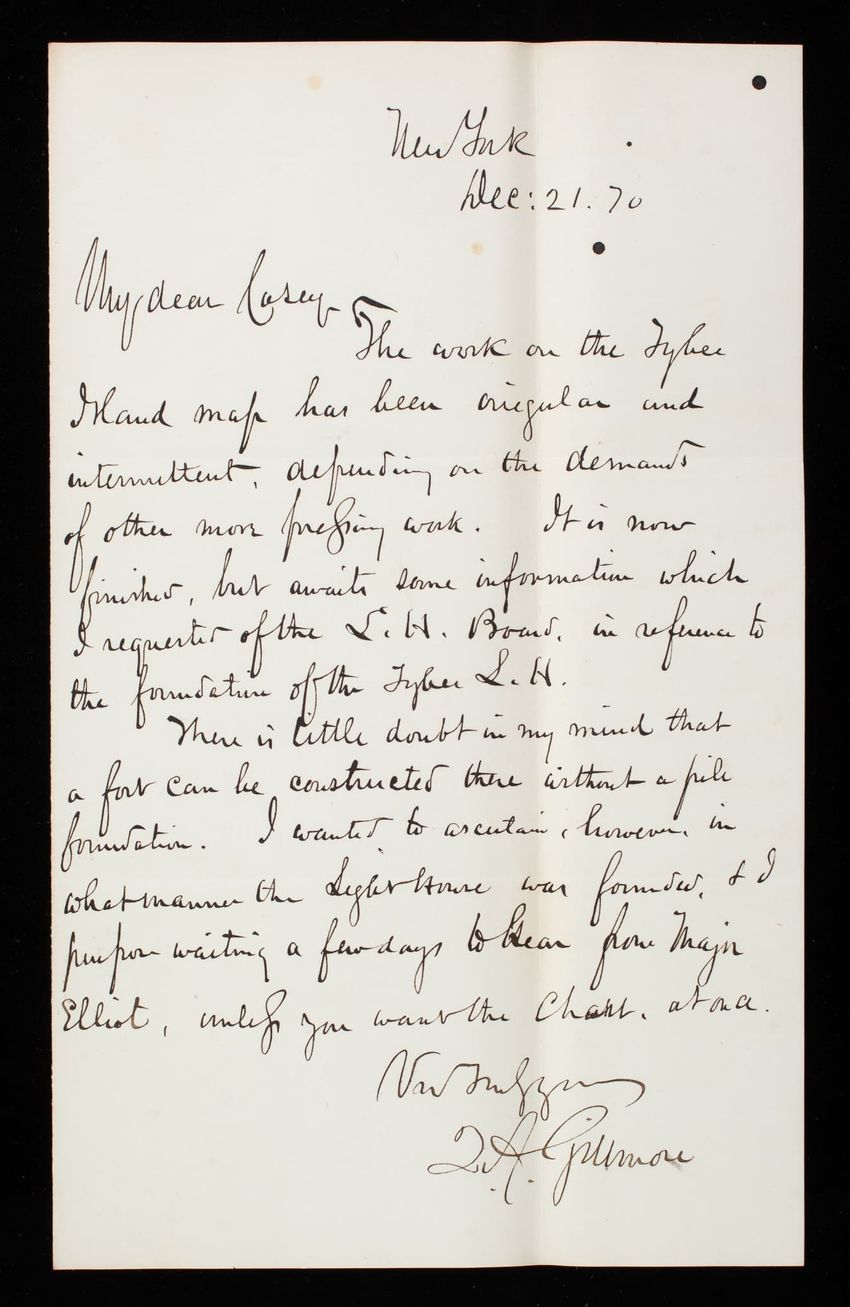 New York
Dec: 21. 70
My dear Casey
The work on the Tybee
Island map has been irregular and
intermittent, depending on the demands
of other more pressing work. It is now
finished, but awaits some information which
I requested of the L. H. Board, in reference to
the foundation of the Tybee L. H.
There is little doubt in my mind that
a fort can be constructed there without a pile
foundation. I wanted to ascertain, however, in
what manner the Light House was founded, & I
purpose waiting a few days to hear from Major
Elliot, unless you want the Chart, at once.
Very truly yours
Q. A. Gillmore